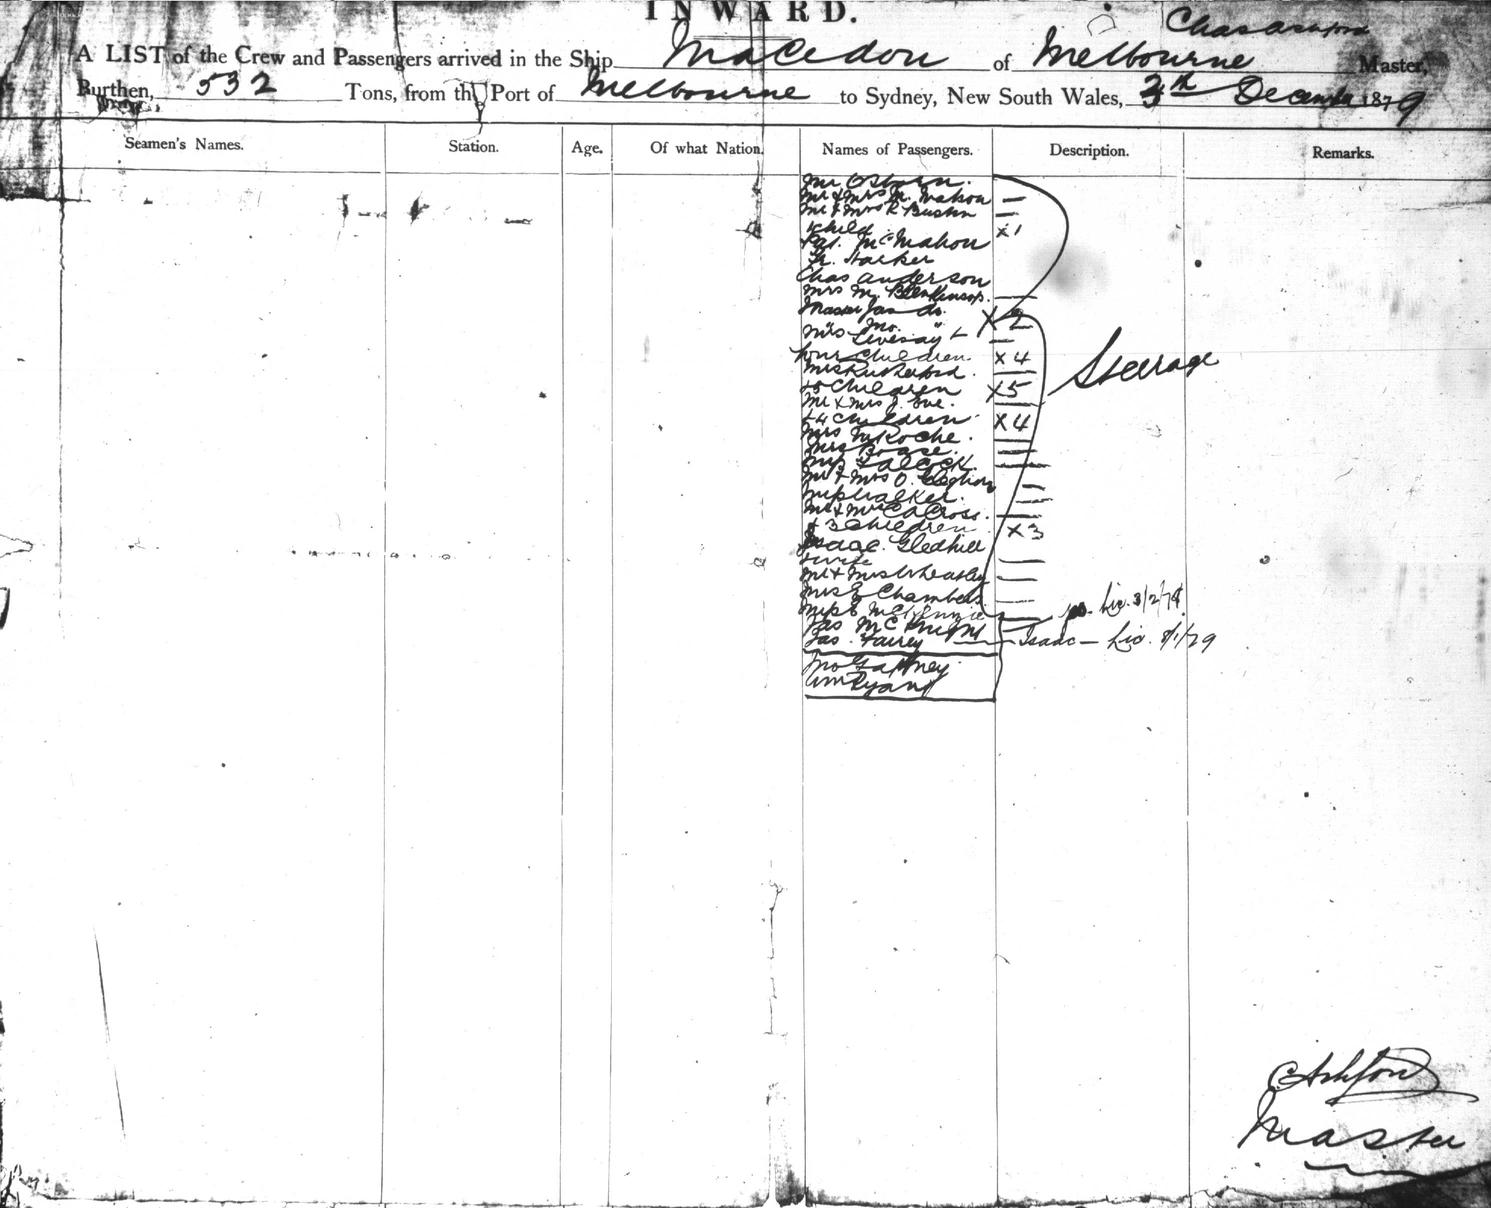 INWARD.
Chas Ashford
A LIST of the Crew and Passengers arrived in the Ship Macedon of Melbourne Master,
Burthen, 532 Tons, from the Port of Melbourne to Sydney, New South Wales, December 1879
Seamen's Names. Station. Age. Of what Nation. Names of Passengers. Description. Remarks.
Mr Osborn.
Mr & Mrs Mahon —
Mr & Mrs R —
child x1
Pat. McMahon
Chas Anderson
Mrs M. Blenkinsop. —
Master Jas do.
" Jno. " x2
Mrs Livesay + —
four children. x4
Mrs Rutherford. —
+5 children x5
Mr & Mrs J. —
+4 children x4
Mrs Roche. —
Mrs Boase. —
—
Mr & Mrs O. —
Miss Walker. —
Mr & Mrs Cross. —
& 3 children x3
Isaac. Gledhill
+ wife —
Mr & Mrs Wheatley —
Mrs E Chambers. —
Miss E McKenzie —
Jas McKnight
Jas. Fairey — Isaac — Lic.
Jno Gaffney
Wm Ryan
Steerage
C Ashford
Master